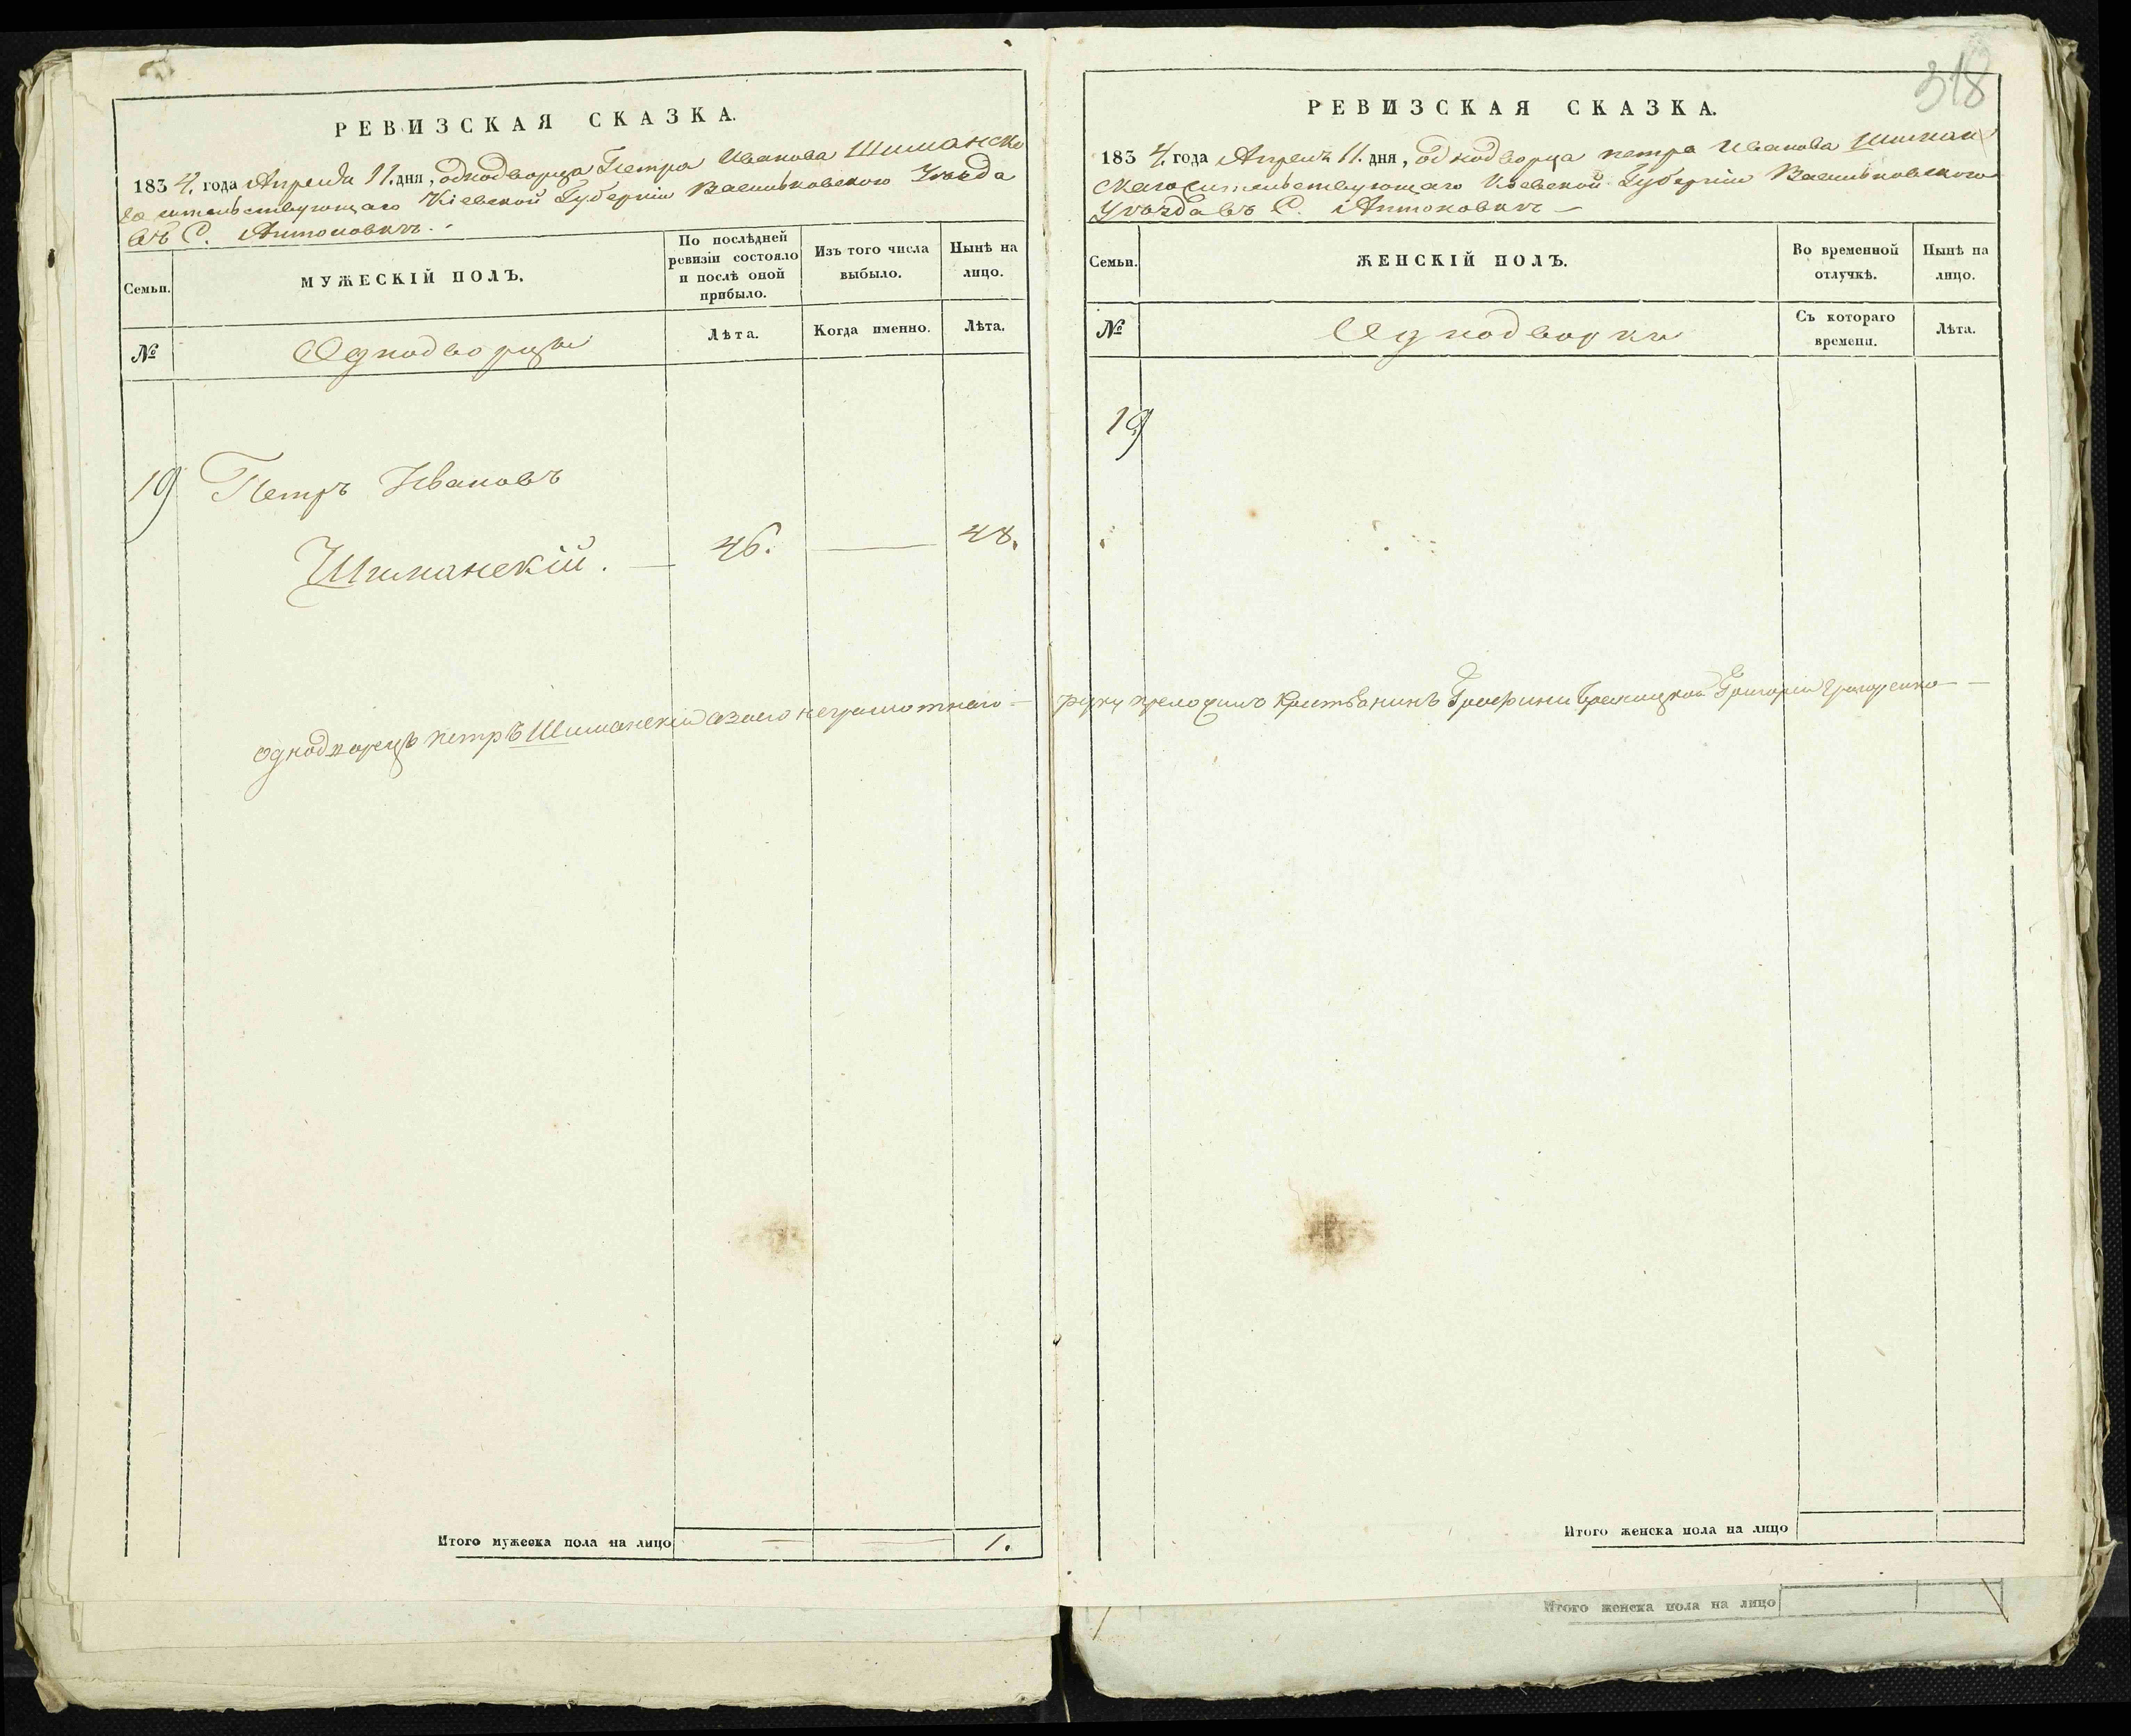 РЕВИЗСКАЯ СКАЗКА.
1834. года Апреля 11. дня, однодворца Петра Иванова Шиманско
го жительствующаго Кіевской Губерніи Васильковского Уѣзда
въ С. Антоновкѣ.
Семьи.
МУЖЕСКІЙ ПОЛЪ.
По послѣдней ревизіи состояло и послѣ оной прибыло.
Изъ того числа выбыло.
Нынѣ на лицо.
№
Однодворцы
Лѣта.
Когда именно.
Лѣта.
19 Петръ Ивановъ
Шиманскій. — 46. — 48.
однодворецъ петръ Шиманскій а за его неграмотнаго —
Итого мужеска пола на лицо — — 1.
318
РЕВИЗСКАЯ СКАЗКА.
1834. года Апреля 11. дня, однодворца петра Иванова Шиман
скаго жительствующаго Кіевской Губерніи Васильковского
Уѣзда въ С. Антоновкѣ —
Семьи.
ЖЕНСКІЙ ПОЛЪ.
Во временной отлучкѣ.
Нынѣ на лицо.
№
Однодворки
Съ котораго времени.
Лѣта.
19
руку приложилъ Графини Браницкой Григорій Григоренко —
Итого женска пола на лицо
Итого женска пола на лицо